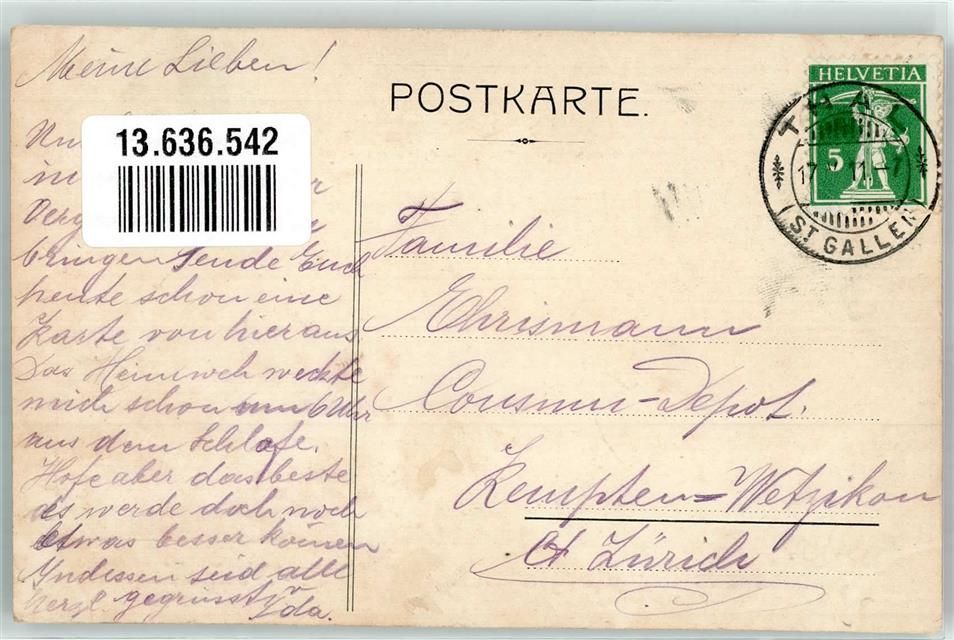 Meine Lieben!
POSTKARTE.
HELVETIA
5
17. V. 11.-7
(ST. GALLEN)
13.636.542
bringen sende Euch
heute schon eine
Karte von hier aus
Das Heimweh weckte
mich schon um 6 Uhr
aus dem Schlafe.
Hofe aber das beste
es werde doch noch
etwas besser kömen
Indessen seid alle
herzl. gegrüsst v.
Ida.
Familie
Ehrismann
Consum-Depot.
Kempten-Wetzikon
Ct Zürich